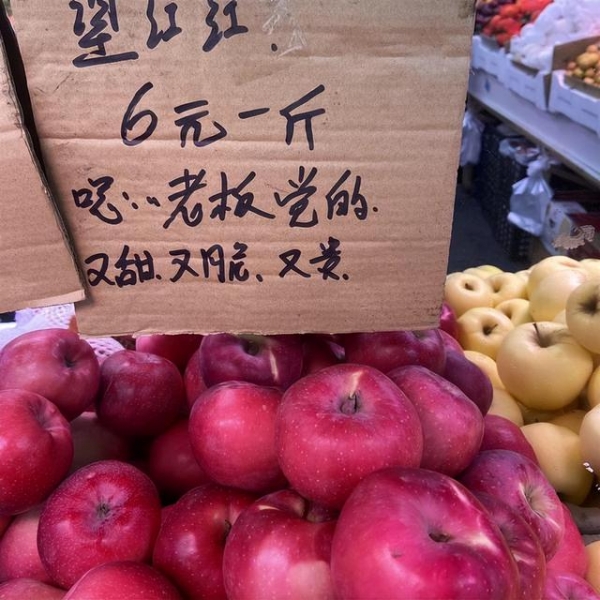 红红.
6元一斤
呃...老板觉的.
又甜.又脆.又贵.